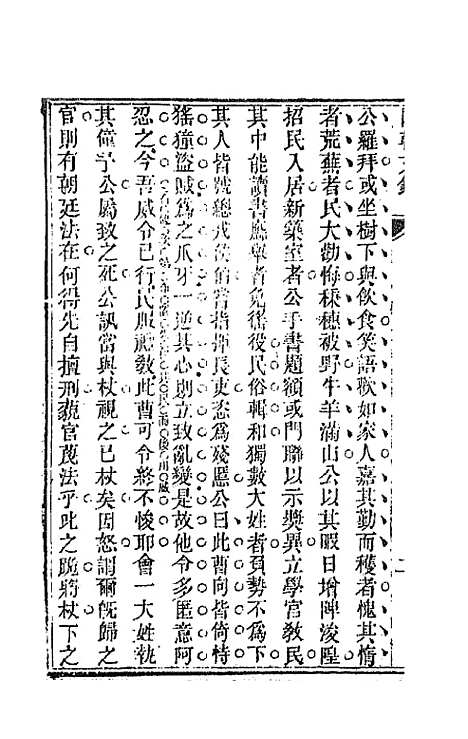 公羅拜或坐樹下與飲食笑語歡如家人嘉其勤而穫者愧其惰
者荒蕪者民大勸悔稼穗被野牛羊滿山公以其暇日增陴浚隍
招民入居新築室者公手書題額或門聯以示獎異立學官教民
其中能讀書應舉者免徭役民俗輯和獨數大姓者負勢不為下
其人皆號總戎侯伯嘗指揮長吏恣為殘慝公曰此曹向皆倚恃
猺獞盜賊為之爪牙一逆其心則立致亂變是故他令多匿意阿
忍之今吾威令已行民服禮教此曹可令終不悛耶會一大姓執
其僮予公屬致之死公訊當與杖視之已杖矣因怒謂爾旣歸之
官則有朝廷法在何得先自擅刑藐官蔑法乎叱之跪將杖下之